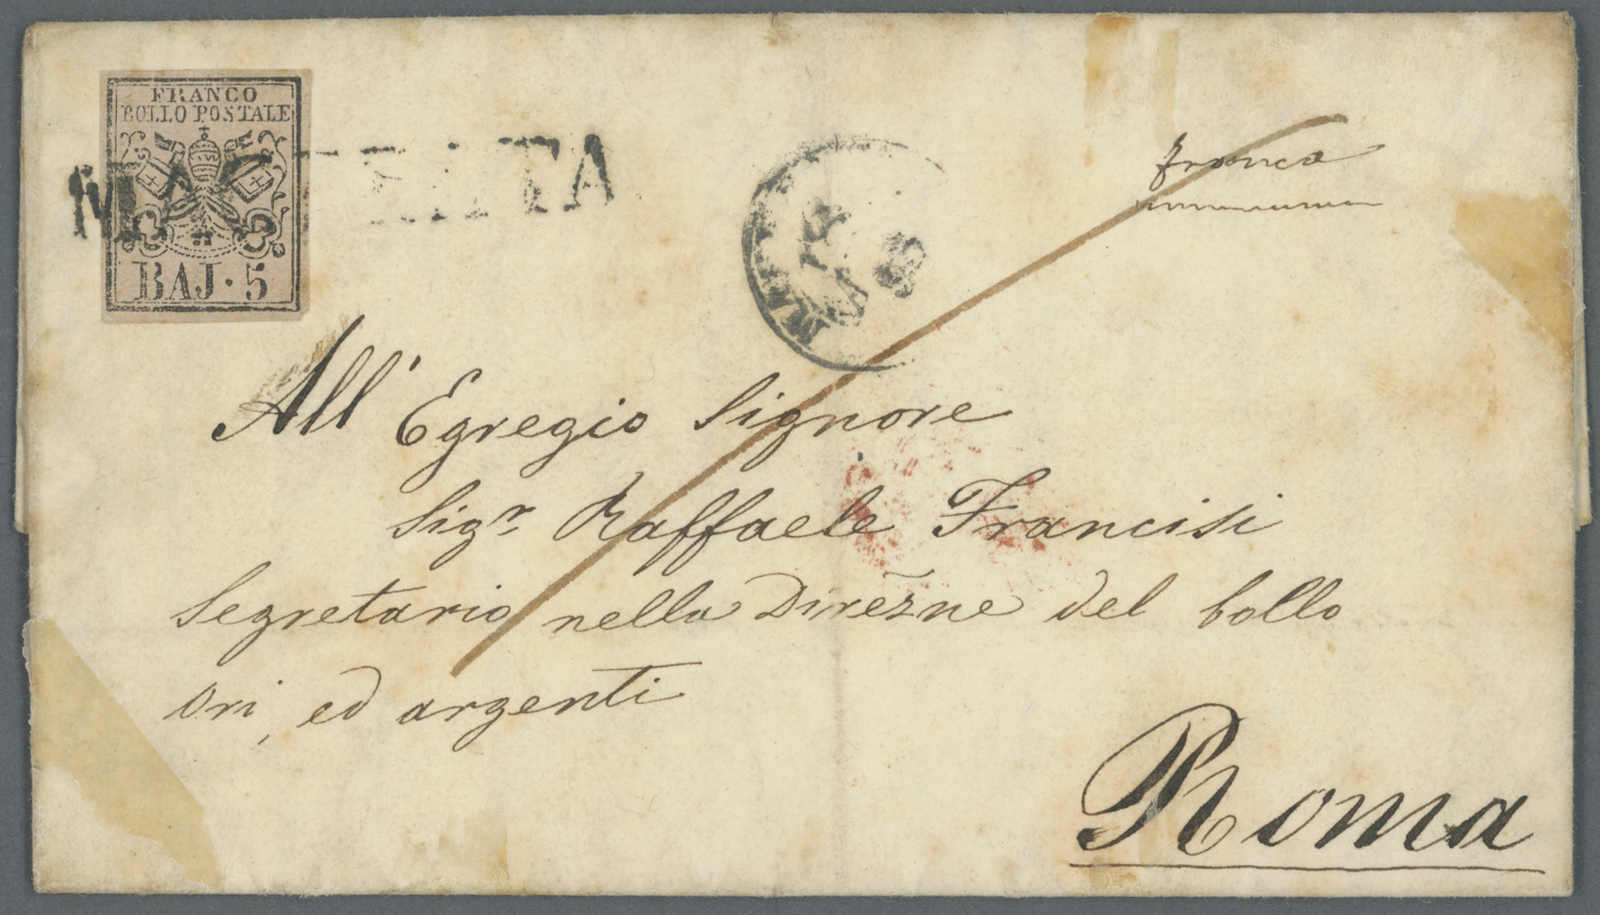 FRANCO
BOLLO POSTALE
BAJ · 5
MACERATA
franca
All' Egregio Signore
Sigr Raffaele Francisi
Segretario nella Direzne del bollo
ori, ed argenti
Roma